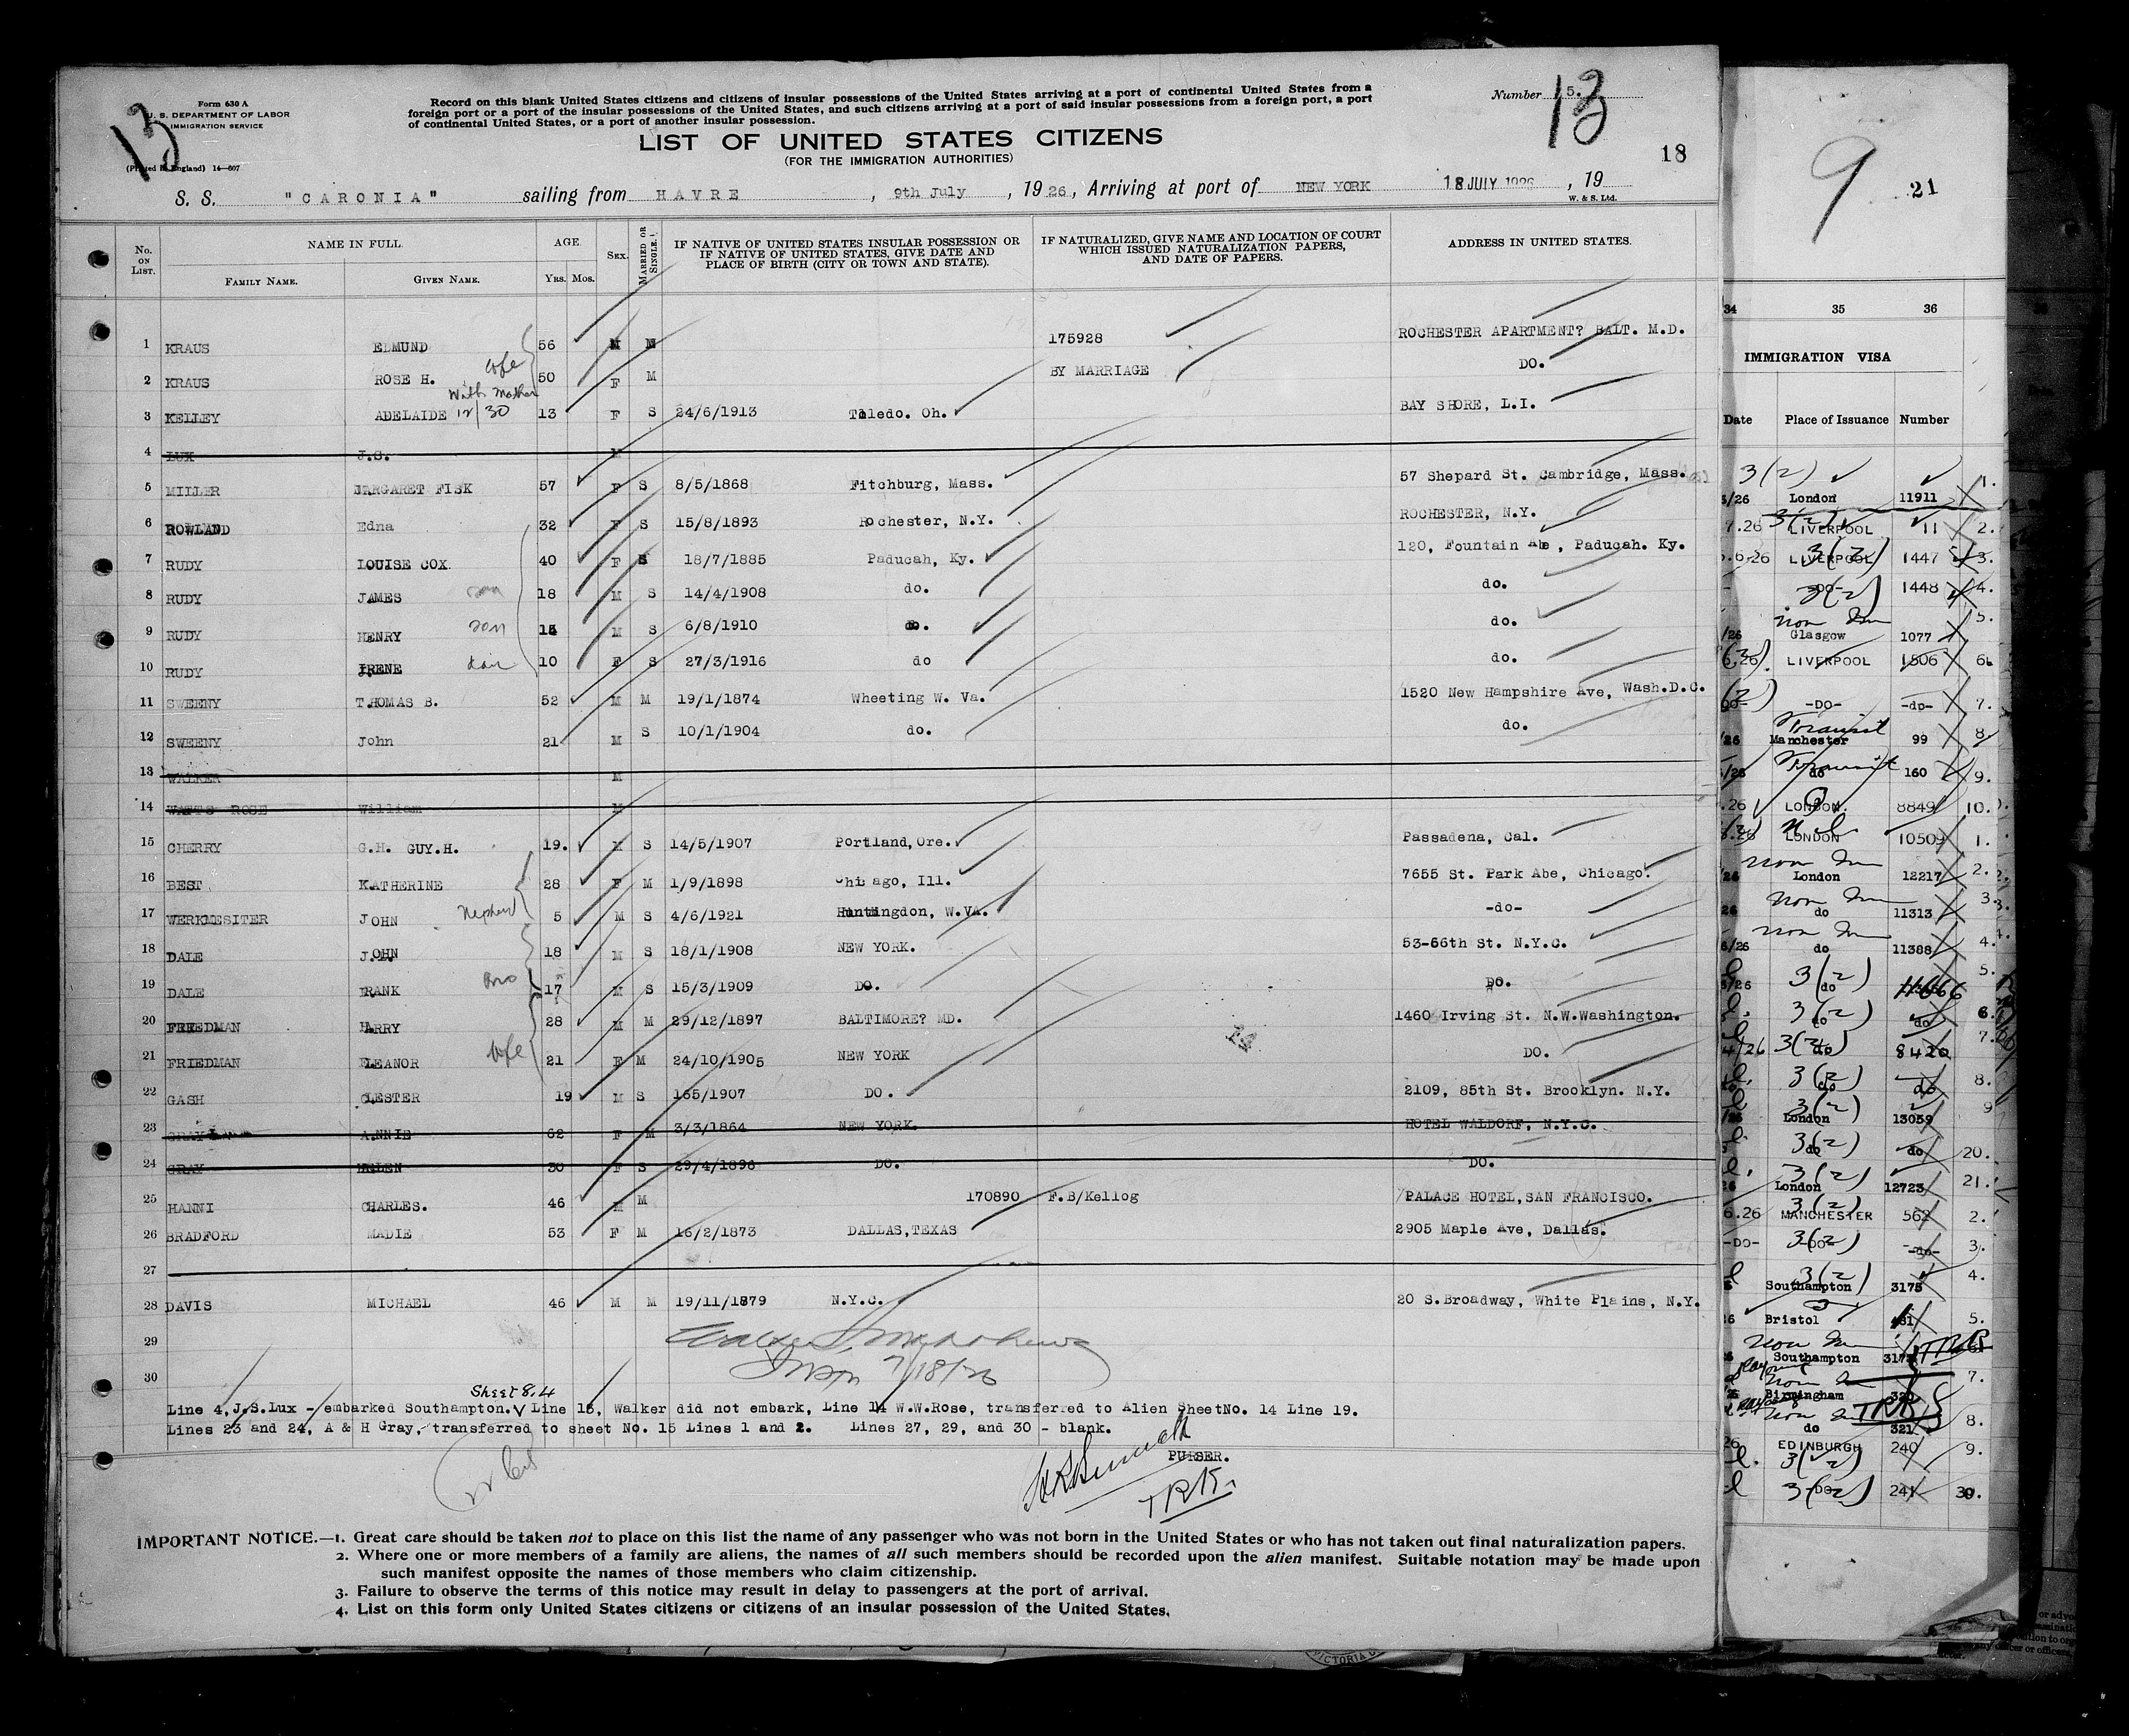 Form 630 A
U. S. DEPARTMENT OF LABOR
IMMIGRATION SERVICE
(Printed in England) 14—607
13
Record on this blank United States citizens and citizens of insular possessions of the United States arriving at a port of continental United States from a
foreign port or a port of the insular possessions of the United States, and such citizens arriving at a port of said insular possessions from a foreign port, a port
of continental United States, or a port of another insular possession.
LIST OF UNITED STATES CITIZENS
(FOR THE IMMIGRATION AUTHORITIES)
Number 5.
13
18
S. S. "CARONIA" sailing from HAVRE, 9th July, 1926, Arriving at port of NEW YORK 18 JULY 1926, 19
W. & S. Ltd.
No. ON LIST. NAME IN FULL. FAMILY NAME. GIVEN NAME. AGE. Yrs. Mos. SEX. MARRIED OR SINGLE. IF NATIVE OF UNITED STATES INSULAR POSSESSION OR IF NATIVE OF UNITED STATES, GIVE DATE AND PLACE OF BIRTH (CITY OR TOWN AND STATE). IF NATURALIZED, GIVE NAME AND LOCATION OF COURT WHICH ISSUED NATURALIZATION PAPERS, AND DATE OF PAPERS. ADDRESS IN UNITED STATES.
1 KRAUS ELMUND 56 M M 175928 ROCHESTER APARTMENT? BALT. M.D.
2 KRAUS ROSE H. wife 50 F M BY MARRIAGE DO.
3 KELLEY ADELAIDE With Mother 12/30 13 F S 24/6/1913 Toledo. Oh. BAY SHORE, L.I.
4 LUX J.S. M
5 MILLER MARGARET FISK 57 F S 8/5/1868 Fitchburg, Mass. 57 Shepard St. Cambridge, Mass.
6 ROWLAND Edna 32 F S 15/8/1893 Rochester, N.Y. ROCHESTER, N.Y.
7 RUDY LOUISE COX 40 F S 18/7/1885 Paducah, Ky. 120, Fountain Abe, Paducah. Ky.
8 RUDY JAMES son 18 M S 14/4/1908 do. do.
9 RUDY HENRY son 15 M S 6/8/1910 do. do.
10 RUDY IRENE 10 F S 27/3/1916 do do.
11 SWEENY THOMAS B. 52 M M 19/1/1874 Wheeting W. Va. 1520 New Hampshire Ave, Wash.D.C.
12 SWEENY John 21 M S 10/1/1904 do. do.
13 WALKER M
14 WATTS ROSE William M
15 CHERRY G.H. GUY.H. 19. M S 14/5/1907 Portland, Ore. Passadena, Cal.
16 BEST KATHERINE 28 F M 1/9/1898 Chicago, Ill. 7655 St. Park Abe, Chicago.
17 WERKMESITER JOHN Nephew 5 M S 4/6/1921 Huntingdon, W.VA. -do-
18 DALE JOHN 18 M S 18/1/1908 NEW YORK. 53-66th St. N.Y.C.
19 DALE FRANK Bro 17 M S 15/3/1909 DO. DO.
20 FRIEDMAN HARRY 28 M M 29/12/1897 BALTIMORE? MD. 1460 Irving St. N.W.Washington.
21 FRIEDMAN ELEANOR wife 21 F M 24/10/1905 NEW YORK DO.
22 GASH CLESTER 19 M S 165/1907 DO. 2109, 85th St. Brooklyn. N.Y.
23 GRAY ANNIE 62 F M 3/3/1864 NEW YORK. HOTEL WALDORF, N.Y.C.
24 GRAY HELEN 30 F S 29/4/1896 DO. DO.
25 HANNI CHARLES. 46 M M 170890 F.B/Kellog PALACE HOTEL, SAN FRANCISCO.
26 BRADFORD MADIE 53 F M 16/2/1873 DALLAS, TEXAS 2905 Maple Ave, Dallas.
27
28 DAVIS MICHAEL 46 M M 19/11/1879 N.Y.C. 20 S.Broadway, White Plains, N.Y.
29
30
7/18/26
Sheet 8.4
Line 4, J.S.Lux - embarked Southampton. Line 13, Walker did not embark, Line 14 W.W.Rose, transferred to Alien SheetNo. 14 Line 19.
Lines 23 and 24, A & H Gray, transferred to sheet No. 15 Lines 1 and 2. Lines 27, 29, and 30 - blank.
PURSER.
TRK.
IMPORTANT NOTICE.—1. Great care should be taken not to place on this list the name of any passenger who was not born in the United States or who has not taken out final naturalization papers.
2. Where one or more members of a family are aliens, the names of all such members should be recorded upon the alien manifest. Suitable notation may be made upon
such manifest opposite the names of those members who claim citizenship.
3. Failure to observe the terms of this notice may result in delay to passengers at the port of arrival.
4. List on this form only United States citizens or citizens of an insular possession of the United States.
9
21
34 35 36
IMMIGRATION VISA
Date Place of Issuance Number
3(2) London 11911 1.
7.26 3(2) LIVERPOOL 11 2.
6.26 3(2) LIVERPOOL 1447 3.
3(2) -DO- 1448 4.
Glasgow 1077 5.
6.26 LIVERPOOL 1506 6.
-DO- -do- 7.
Transit Manchester 99 8.
Transit do 160 9.
.26 LONDON. 8849 10.
LONDON 10509 1.
London 12217 2.
do 11313 3.
do 11388 4.
3(2) do 11666 5.
3(2) do do 6.
3(2) do 8420 7.
3(2) do do 8.
3(2) London 13059 9
3(2) do do 20.
3(2) London 12723 21.
6.26 3(2) MANCHESTER 562 2.
-DO- 3(2) -DO- -do- 3.
3(2) Southampton 3175 4.
Bristol 5.
Southampton
Birmingham 320 7.
do 321 8.
EDINBURGH 240 9.
3(2) -DO- 241 30.